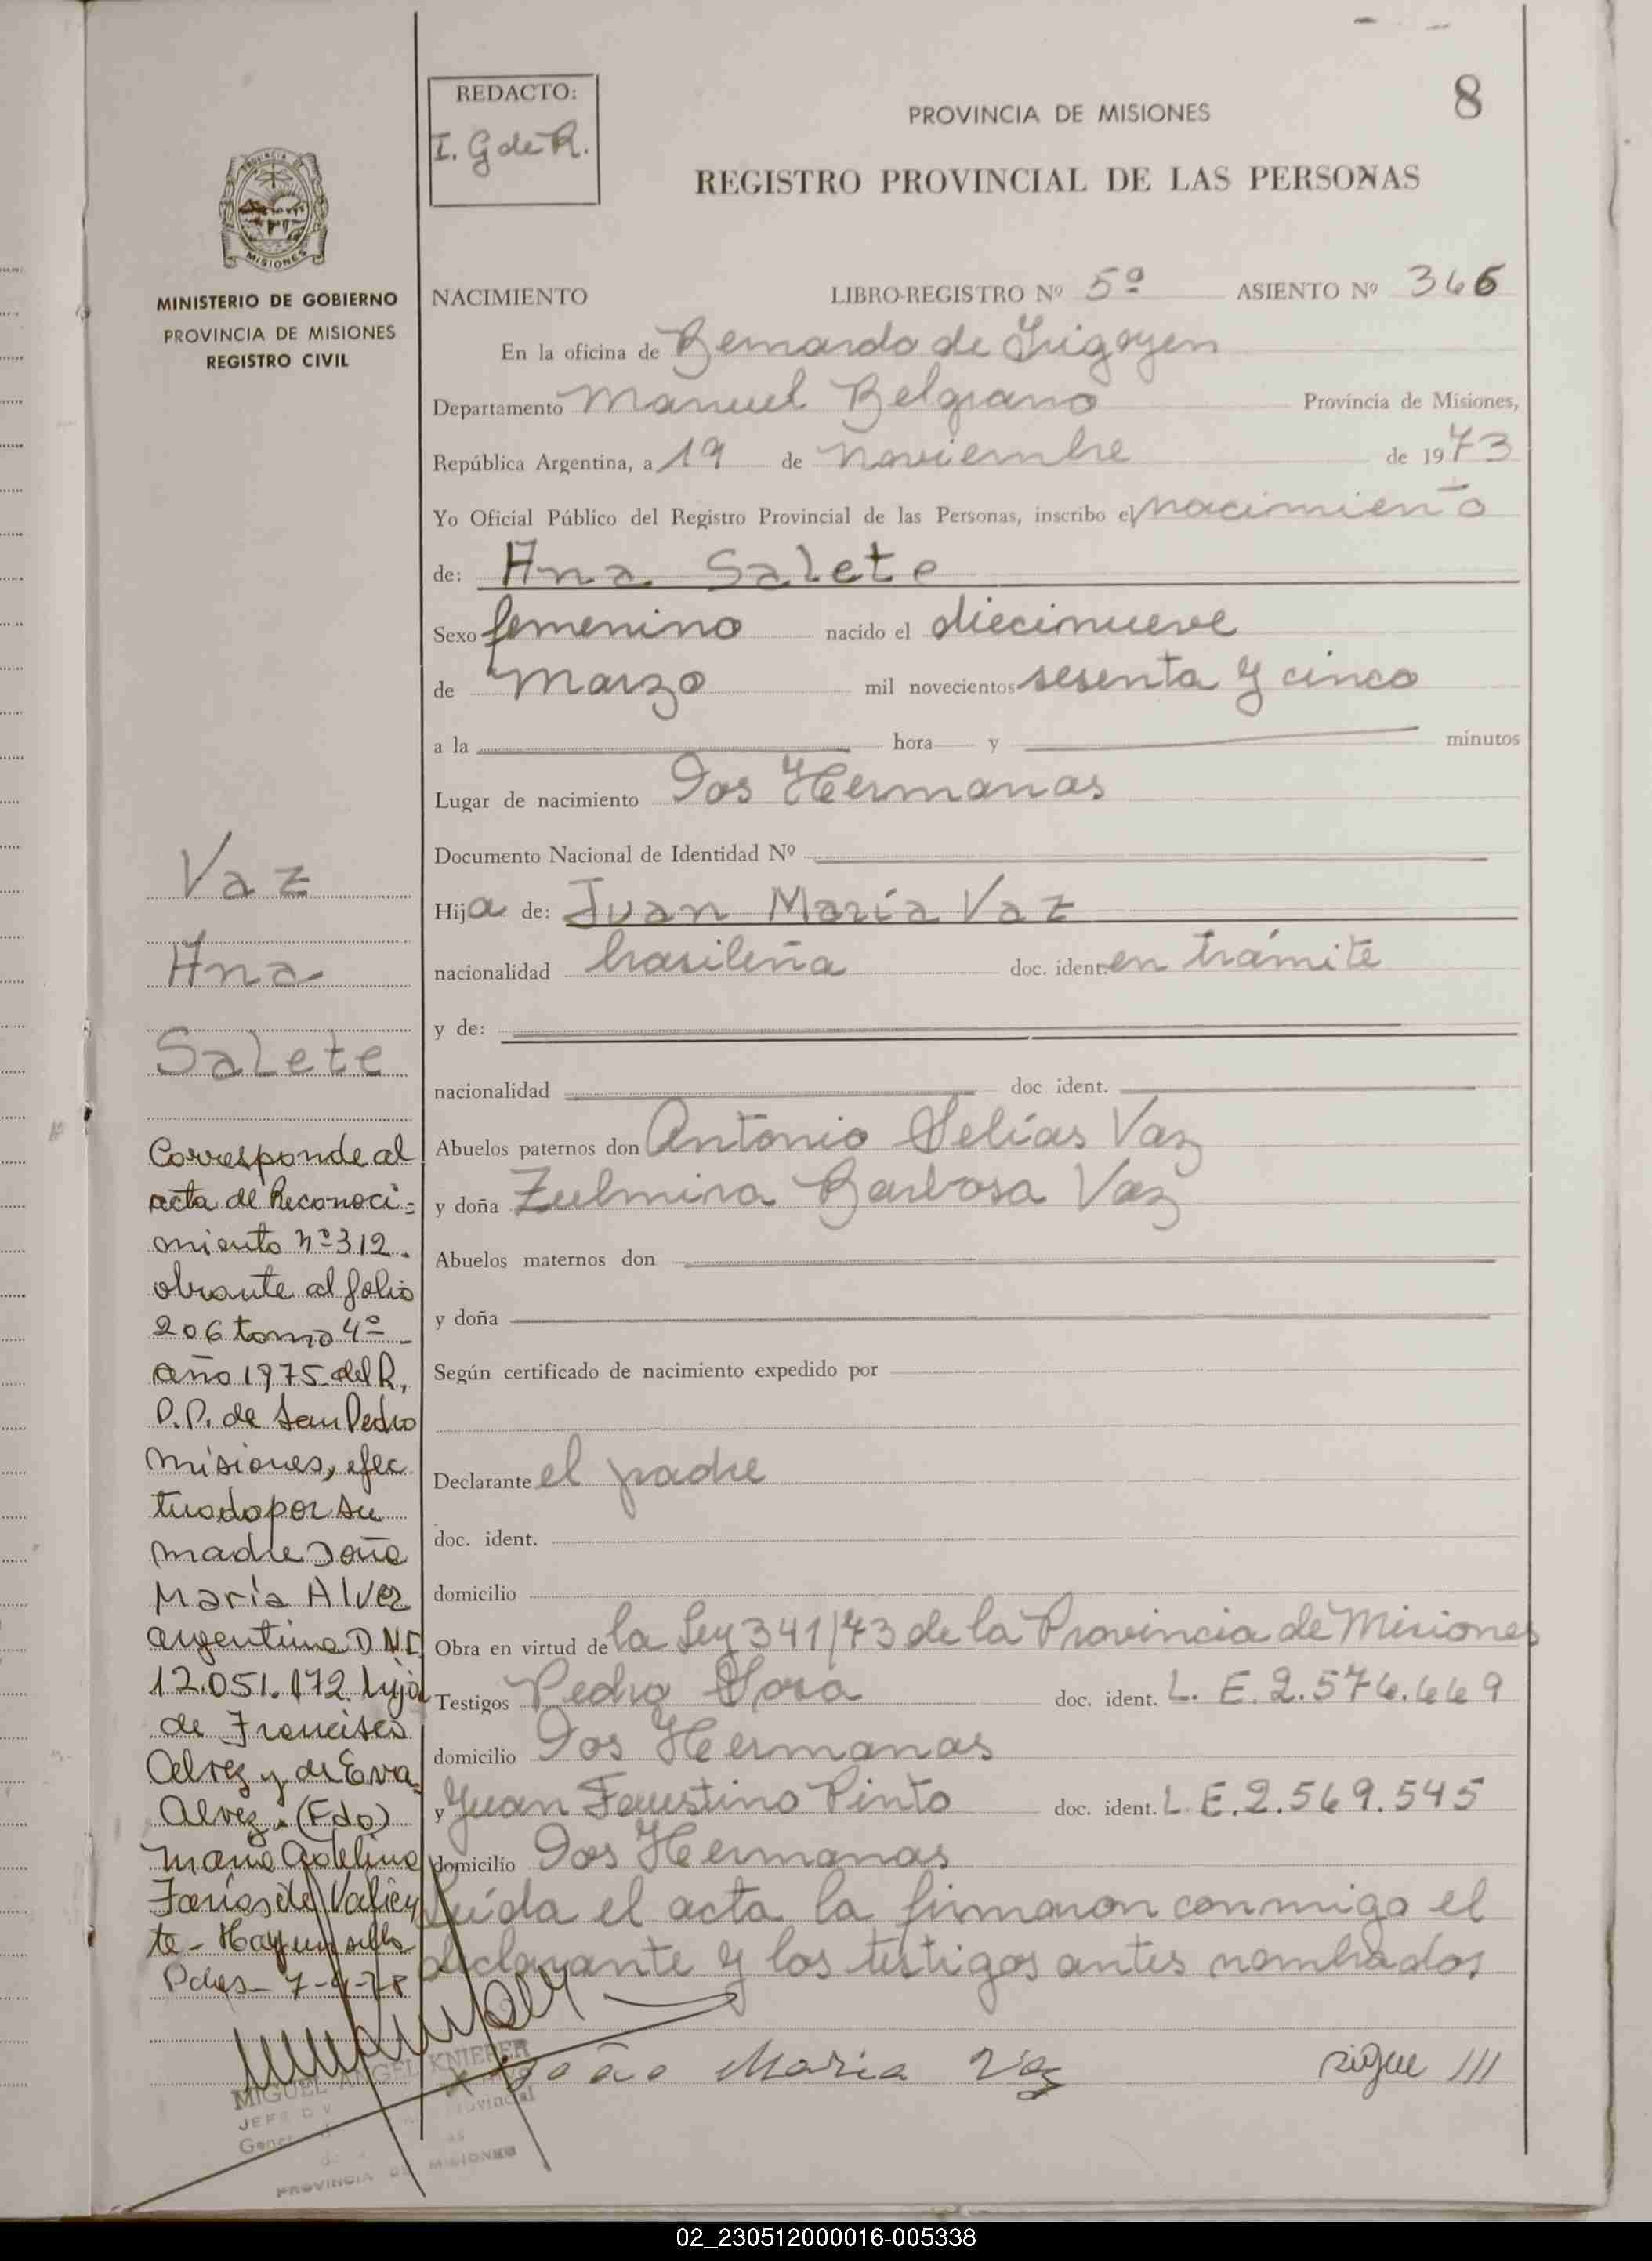 REDACTO:
I. G de R.
8
PROVINCIA DE MISIONES
REGISTRO PROVINCIAL DE LAS PERSONAS
PROVINCIA DE
MISIONES
MINISTERIO DE GOBIERNO
PROVINCIA DE MISIONES
REGISTRO CIVIL
NACIMIENTO LIBRO-REGISTRO Nº 5º ASIENTO Nº 366
En la oficina de Bernardo de Irigoyen
Departamento Manuel Belgrano Provincia de Misiones,
República Argentina, a 19 de noviembre de 1973
Yo Oficial Público del Registro Provincial de las Personas, inscribo el nacimiento
de: Ana Salete
Sexo femenino nacido el diecinueve
de marzo mil novecientos sesenta y cinco
a la hora y minutos
Lugar de nacimiento Dos Hermanas
Documento Nacional de Identidad Nº
Hija de: Juan María Vaz
nacionalidad brasileña doc. ident. en trámite
y de:
nacionalidad doc ident.
Abuelos paternos don Antonio Selías Vaz
y doña Zulmira Barbosa Vaz
Abuelos maternos don
y doña
Según certificado de nacimiento expedido por
Declarante el padre
doc. ident.
domicilio
Obra en virtud de la Ley 341/73 de la Provincia de Misiones
Testigos Pedro Sosa doc. ident. L. E. 2.576.669
domicilio Dos Hermanas
y Juan Faustino Pinto doc. ident. L. E. 2.569.545
domicilio Dos Hermanas
Leída el acta la firmaron conmigo el
declarante y los testigos antes nombrados
João Maria Vaz sigue ///
Vaz
Ana
Salete
Corresponde al
acta de Reconoci=
miento nº 312.
obrante al folio
206 tomo 4º
año 1975 del R.
P.P. de San Pedro
Misiones, efec
tuado por su
madre Doña
María Alvez
argentina D.N.I.
12.051.172. hija
de Francisco
Alvez y de Eva
Alvez. (Fdo)
Maria Adelina
Farias de Valien
te - Hay un sello
Pdas - 7-4-78
MIGUEL ANGEL KNIEPER
PROVINCIA DE MISIONES
02_230512000016-005338